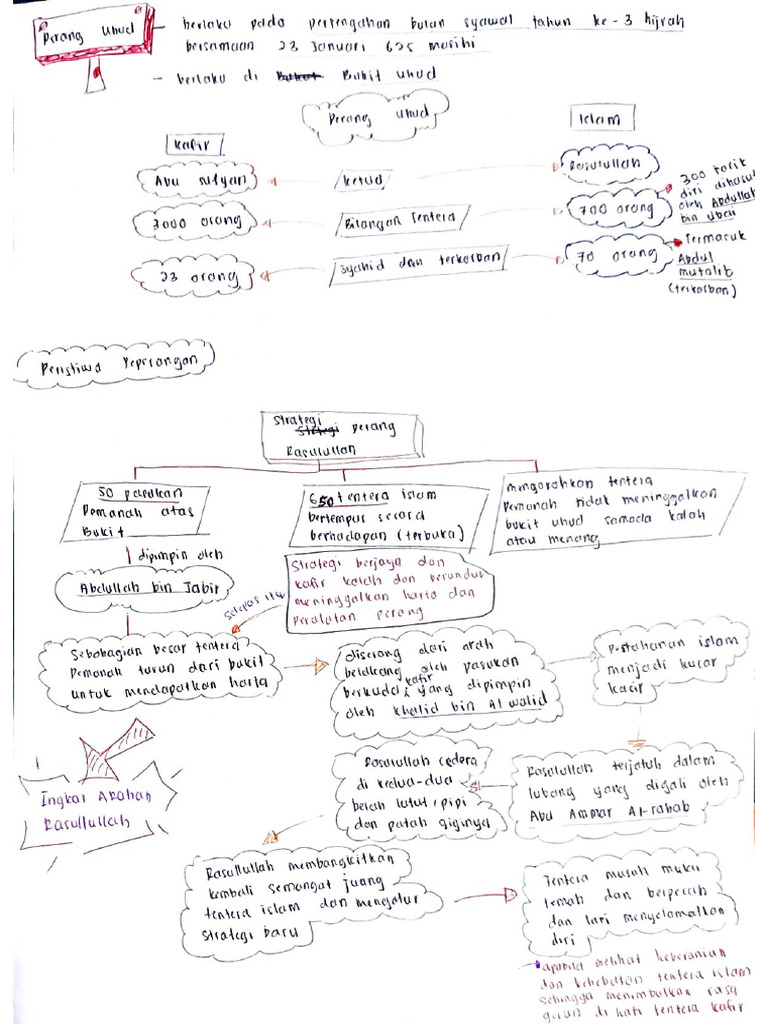 Perang Uhud
- berlaku pada pertengahan bulan syawal tahun ke-3 hijrah
bersamaan 23 Januari 625 masihi
- berlaku di Bukit Uhud
Perang Uhud
Kafir
Islam
Abu sufyan
Ketua
Rasulullah
3000 orang
Bilangan Tentera
700 orang
300 tarik
diri dihasut
oleh Abdullah
bin Ubai
23 orang
Syahid dan terkorban
70 orang
Termasuk
Abdul
mutalib
(terkorban)
Peristiwa Peperangan
Strategi
perang
Rasulullah
50 pasukan
Pemanah atas
Bukit
650 tentera islam
bertempur secara
berhadapan (terbuka)
mengarahkan tentera
Pemanah tidak meninggalkan
bukit uhud samada kalah
atau menang
dipimpin oleh
Abdullah bin Jabir
Strategi berjaya dan
kafir kalah dan berundur
meninggalkan harta dan
Peralatan perang
Selepas itu
Sebahagian besar tentera
Pemanah turun dari bukit
untuk mendapatkan harta
diserang dari arah
belakang oleh pasukan
berkuda kafir yang dipimpin
oleh Khalid bin Al walid
Pertahanan islam
menjadi kucar
kacir
Ingkar Arahan
Rasullullah
Rasulullah cedera
di kedua-dua
belah lutut, pipi
dan patah giginya
Rasulullah terjatuh dalam
lubang yang digali oleh
Abu Ammar Al-rahab
Rasullullah membangkitkan
kembali semangat juang
tentera islam dan mengatur
strategi baru
Tentera musuh mula
lemah dan berpecah
dan lari menyelamatkan
diri
apabila melihat keberanian
dan kehebatan tentera islam
sehingga menimbulkan rasa
gerun di hati tentera kafir